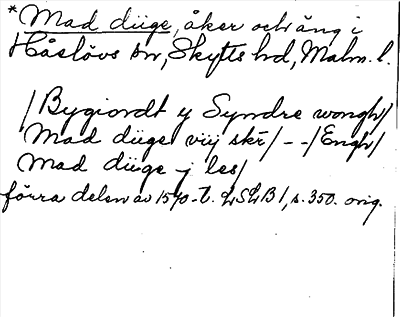 *Mad düge, åker och äng i
Håslövs sn, Skytts hd, Malm. l.
/Bygiordt y Syndre wongh/
Mad düge viij skr/ - - /Engh/
Mad düge j les/
förra delen av 1570-t. LSLB 1, s. 350. orig.